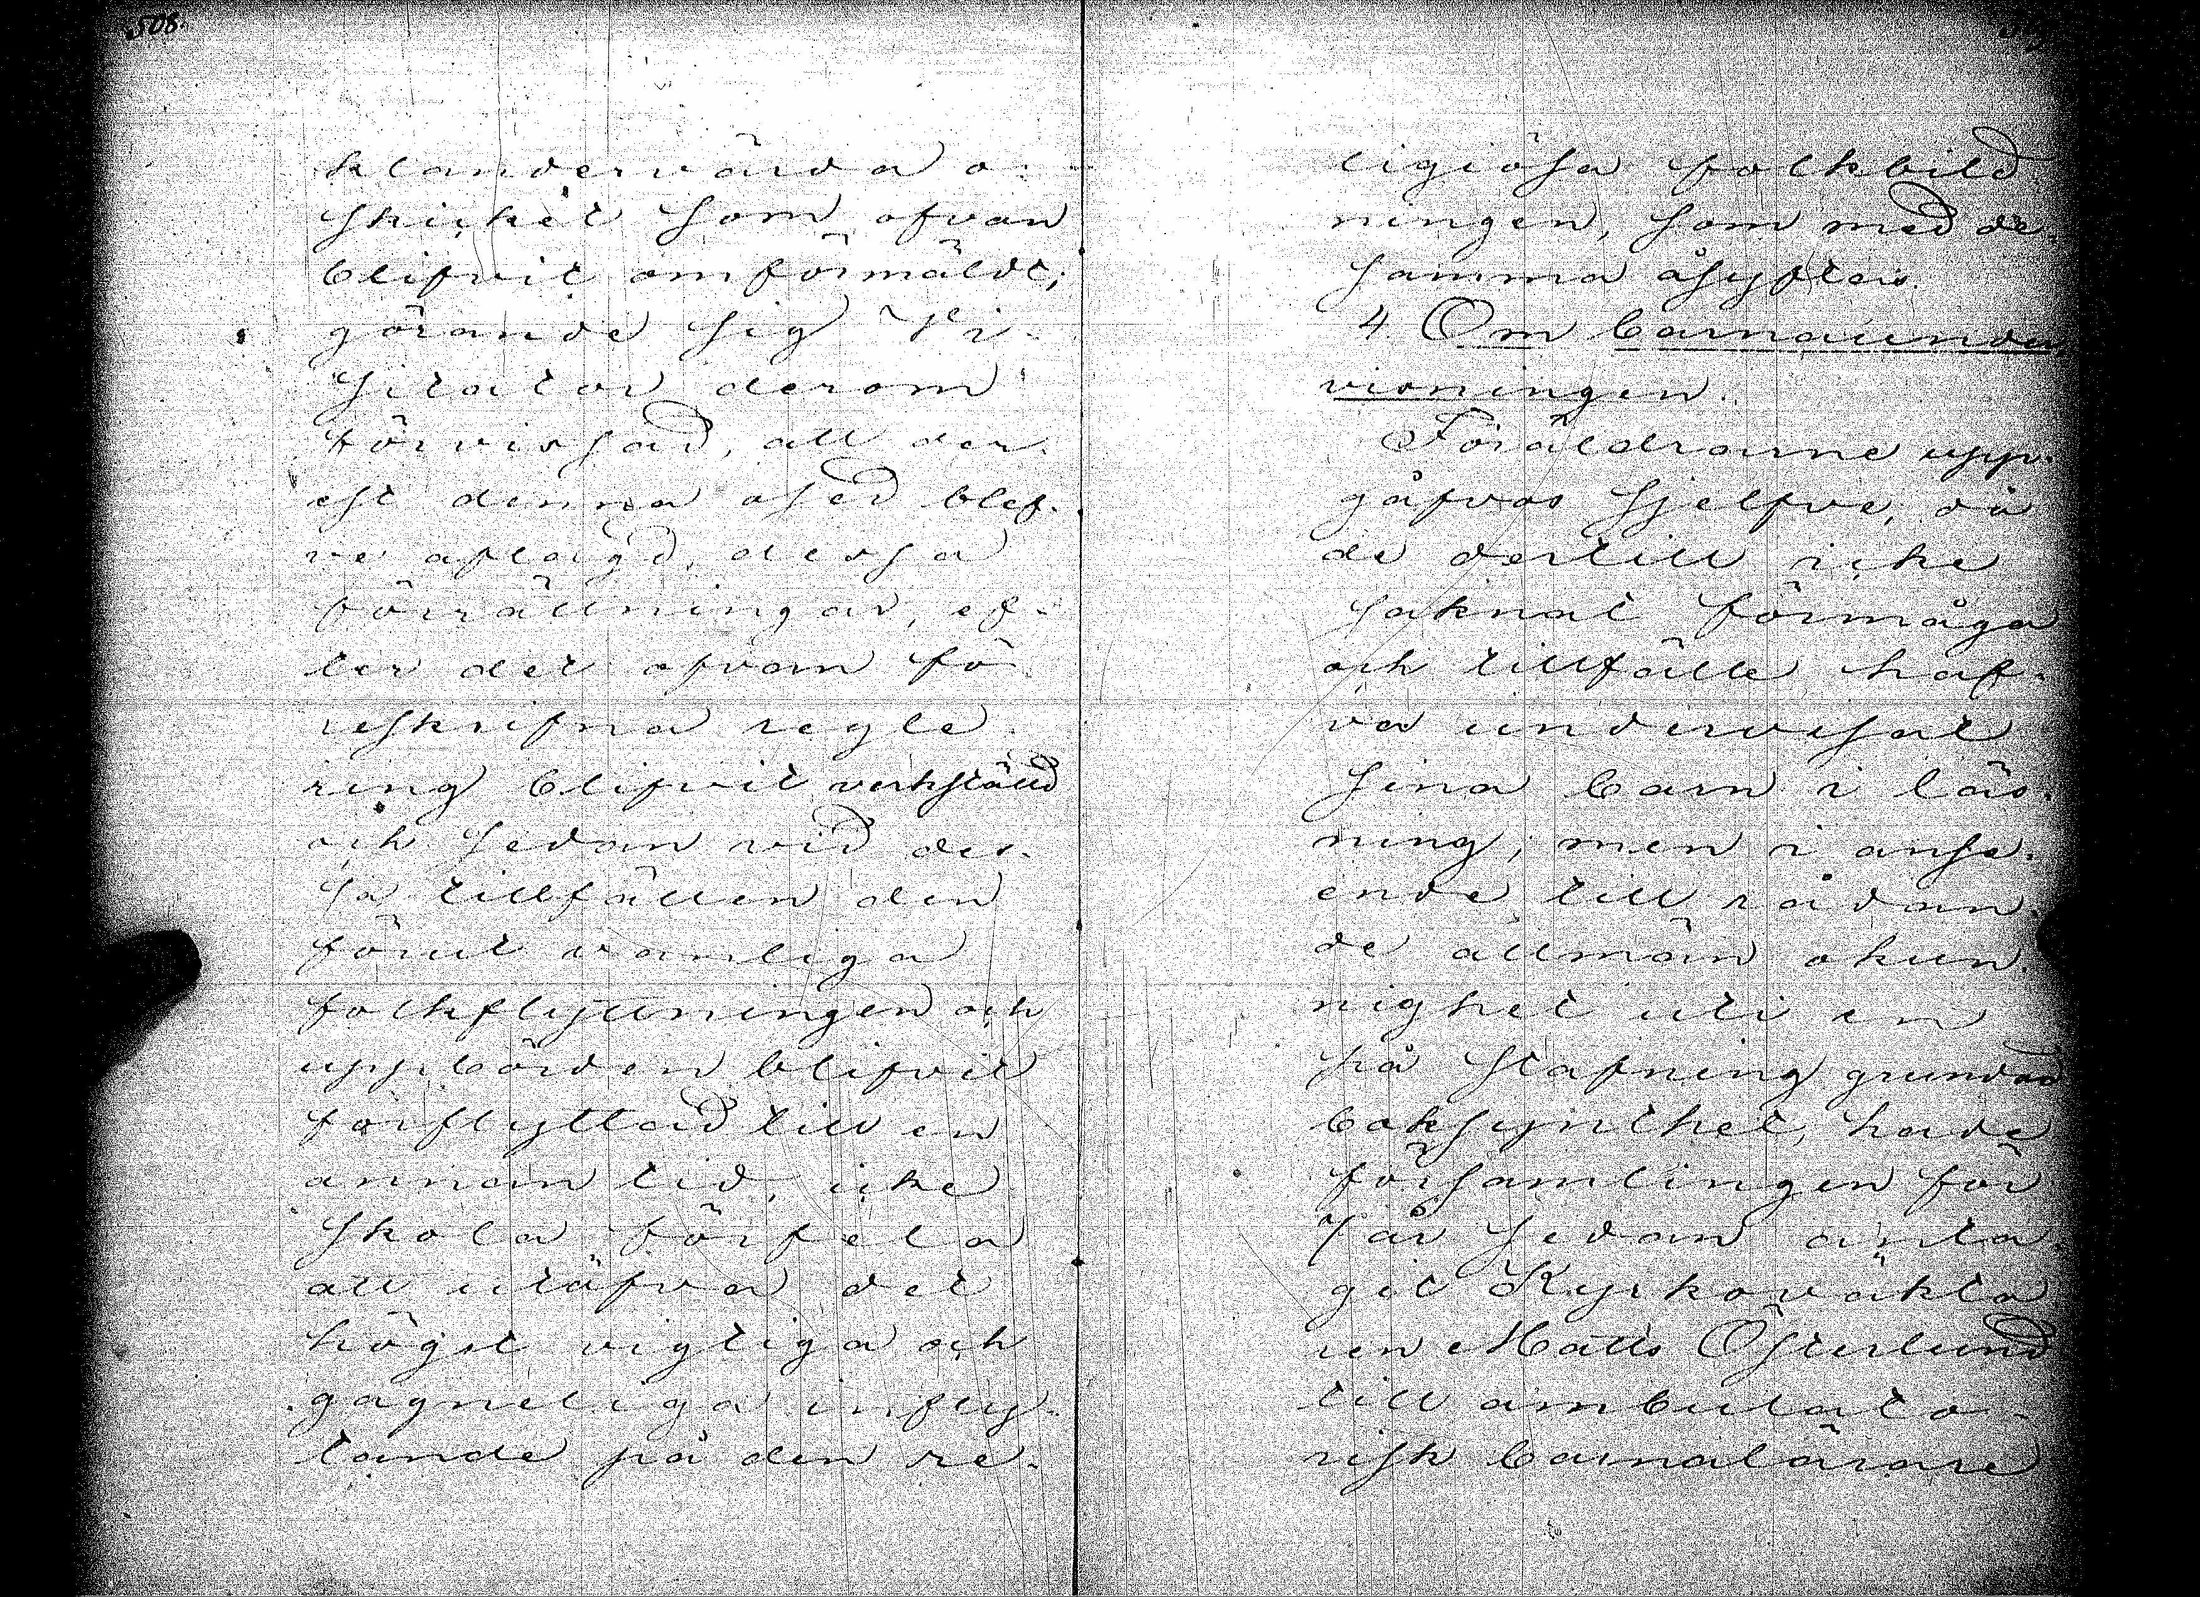 508.
klandervärda o-
skicket som ofvan
blifvit omförmäldt;
görande sig Vi-
sitator derom
förvissad, att der-
est denna osed blef-
ve aflagd, dessa
förrättningar, ef-
ter det ofvan fö-
reskrifna regle-
ring blifvit verkställd
och sedan vid des-
sa tillfällen den
förut vanliga
folkflyttningen och
uppbörden blifvit
förflyttad till en
annan tid, icke
skola förfela
att utöfva det
högst vigtiga och
gagneliga infly-
tande på den re-
ligiösa folkbild-
ningen, som med de-
samma åsyftas.
4. Om barnaunder-
visningen.
Föräldrarne upp-
gåfvos sjelfve, då
de dertill icke
saknat förmåga
och tillfälle haf-
va undervisat
sina barn i läs-
ning; men i anse-
ende till rådan-
de allmän okun-
nighet uti en
på stafning grundad
boksynthet, hade
församlingen för
7 år sedan anta-
git Kyrkovākta-
ren Matts Österlund
till ambulato-
risk barnalärare